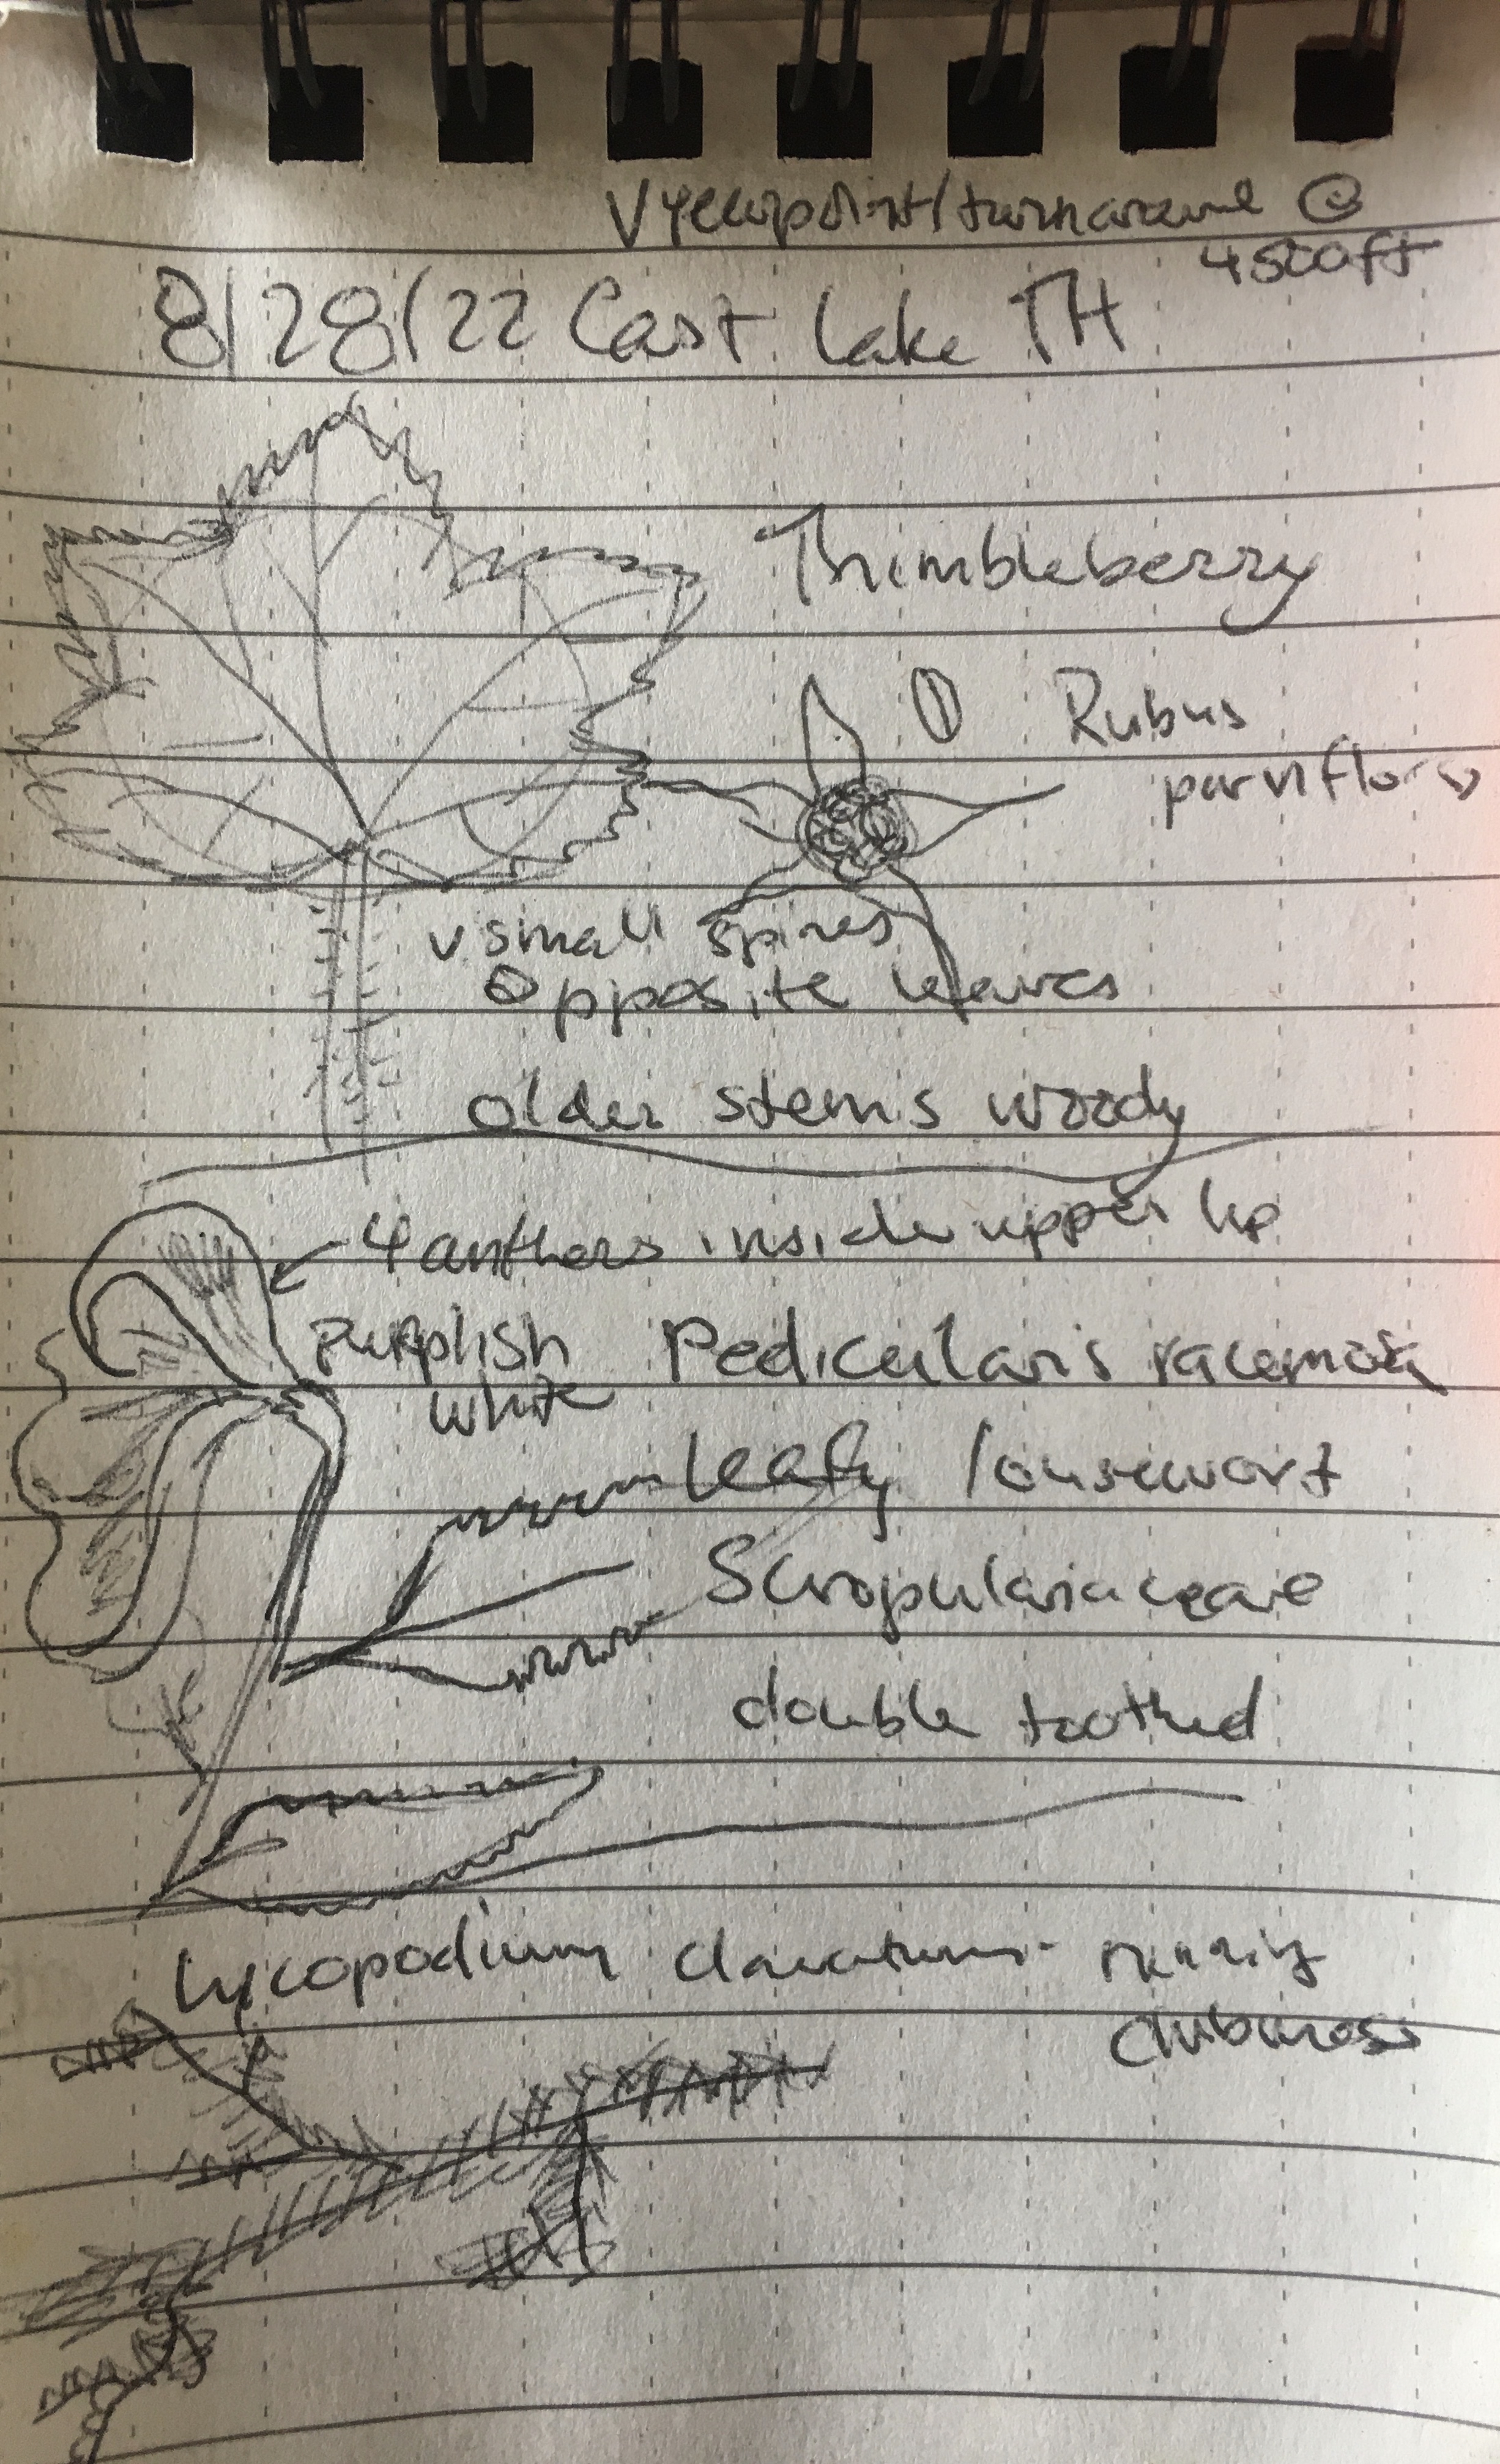 Viewpoint/turnaround @
4500ft
8/28/22 Cast Lake TH
Thimbleberry
Rubus
parviflorus
v small spines
Opposite leaves
older stems woody
4 anthers inside upper lip
purplish
white
Pedicularis racemosa
leafy lousewort
Scropulariaceae
double toothed
Lycopodium clavatum - running
clubmoss